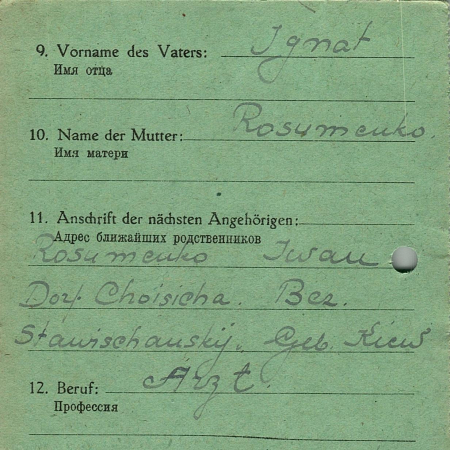 9. Vorname des Vaters: Ignat
Имя отца
10. Name der Mutter: Rosumenko.
Имя матери
11. Anschrift der nächsten Angehörigen:
Адрес ближайших родственников
Rosumenko Iwan
Dorf Choisicha. Bez.
Stawischanskij. Geb. Kiew
12. Beruf: Arzt.
Профессия